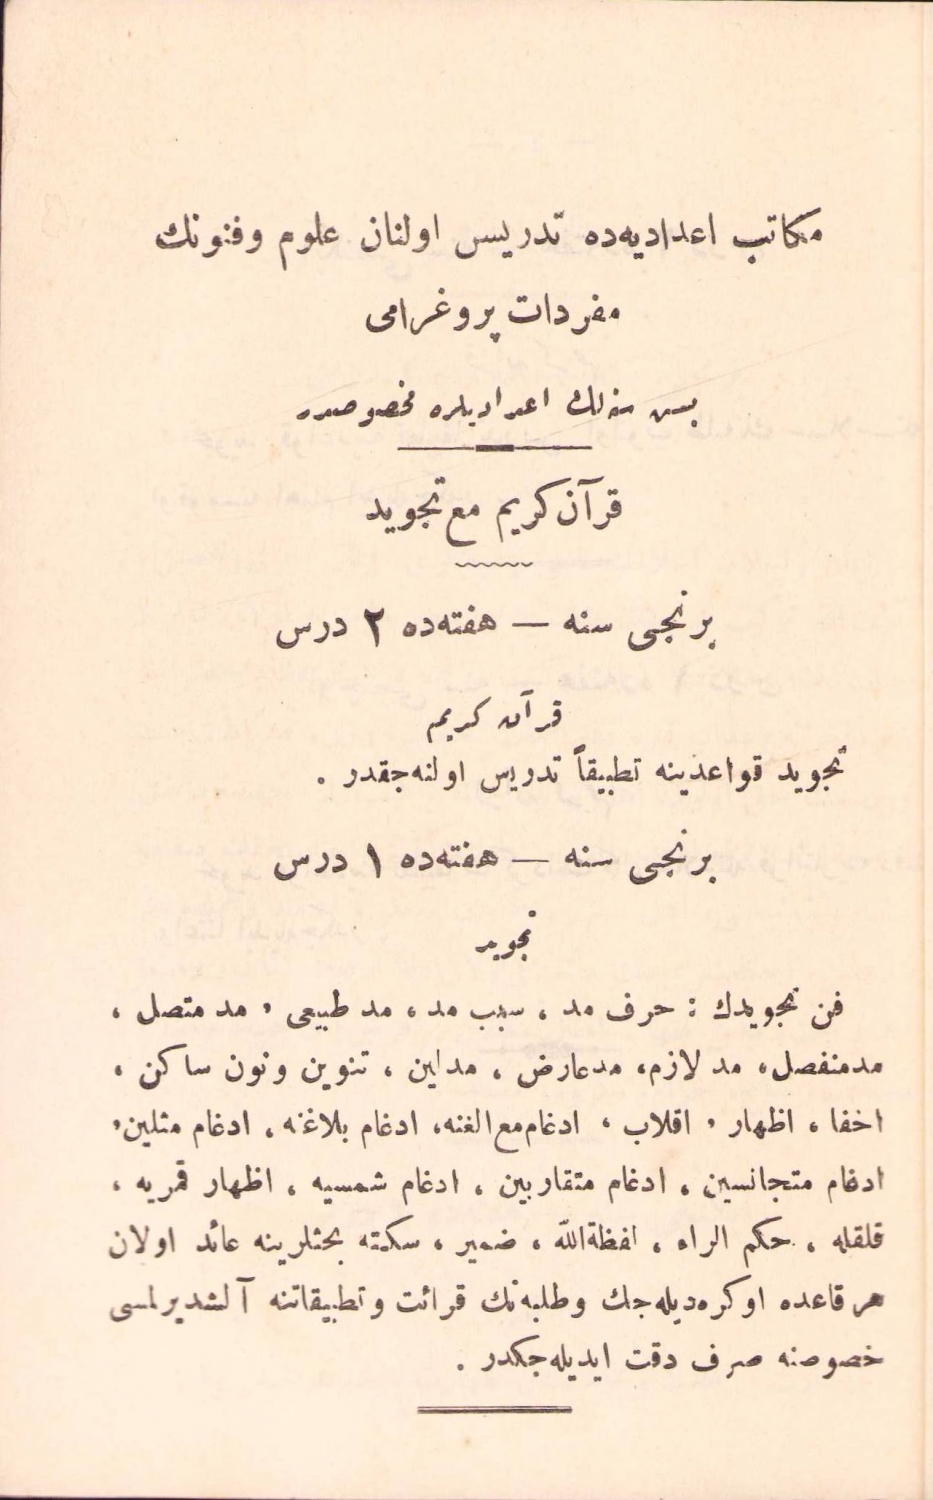 مكاتب اعداديه‌ده تدريس اولنان علوم وفنونك
مفردات پروغرامی
بش سنه‌لك اعداديلره مخصوصدر
قرآن كريم مع تجويد
برنجی سنه — هفته‌ده ٢ درس
قرآن كريم
تجويد قواعدينه تطبيقاً تدريس اولنه‌جقدر .
برنجی سنه — هفته‌ده ١ درس
تجويد
فن تجويدك : حرف مد ، سبب مد ، مد طبيعی ، مد متصل ،
مد منفصل ، مد لازم ، مد عارض ، مد لين ، تنوين ونون ساكن ،
اخفا ، اظهار ، اقلاب ، ادغام مع الغنه ، ادغام بلاغنه ، ادغام مثلين ،
ادغام متجانسين ، ادغام متقاربين ، ادغام شمسيه ، اظهار قمريه ،
قلقله ، حكم الراء ، لفظةالله ، ضمير ، سكته بحثلرينه عائد اولان
هر قاعده اوكره‌ديله‌جك وطلبه‌نك قرائت وتطبيقاتنه آلشديرلمسی
خصوصنه صرف دقت ايديله‌جكدر .